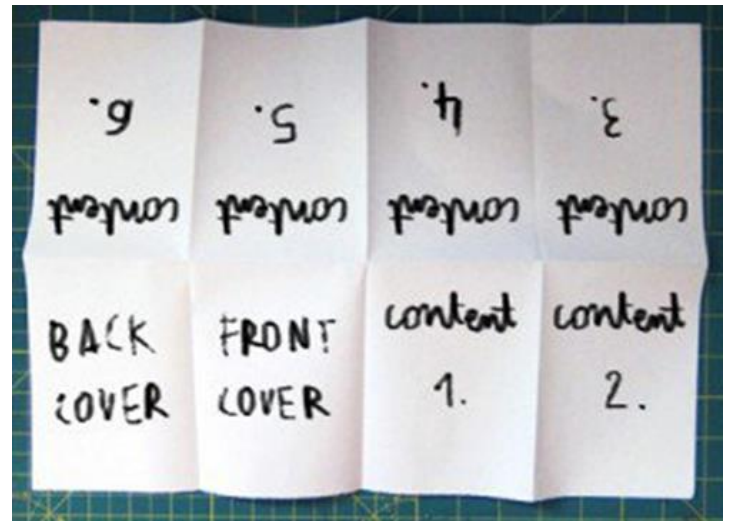 6.
content
5.
content
4.
content
3.
content
BACK
COVER
FRONT
COVER
content
1.
content
2.